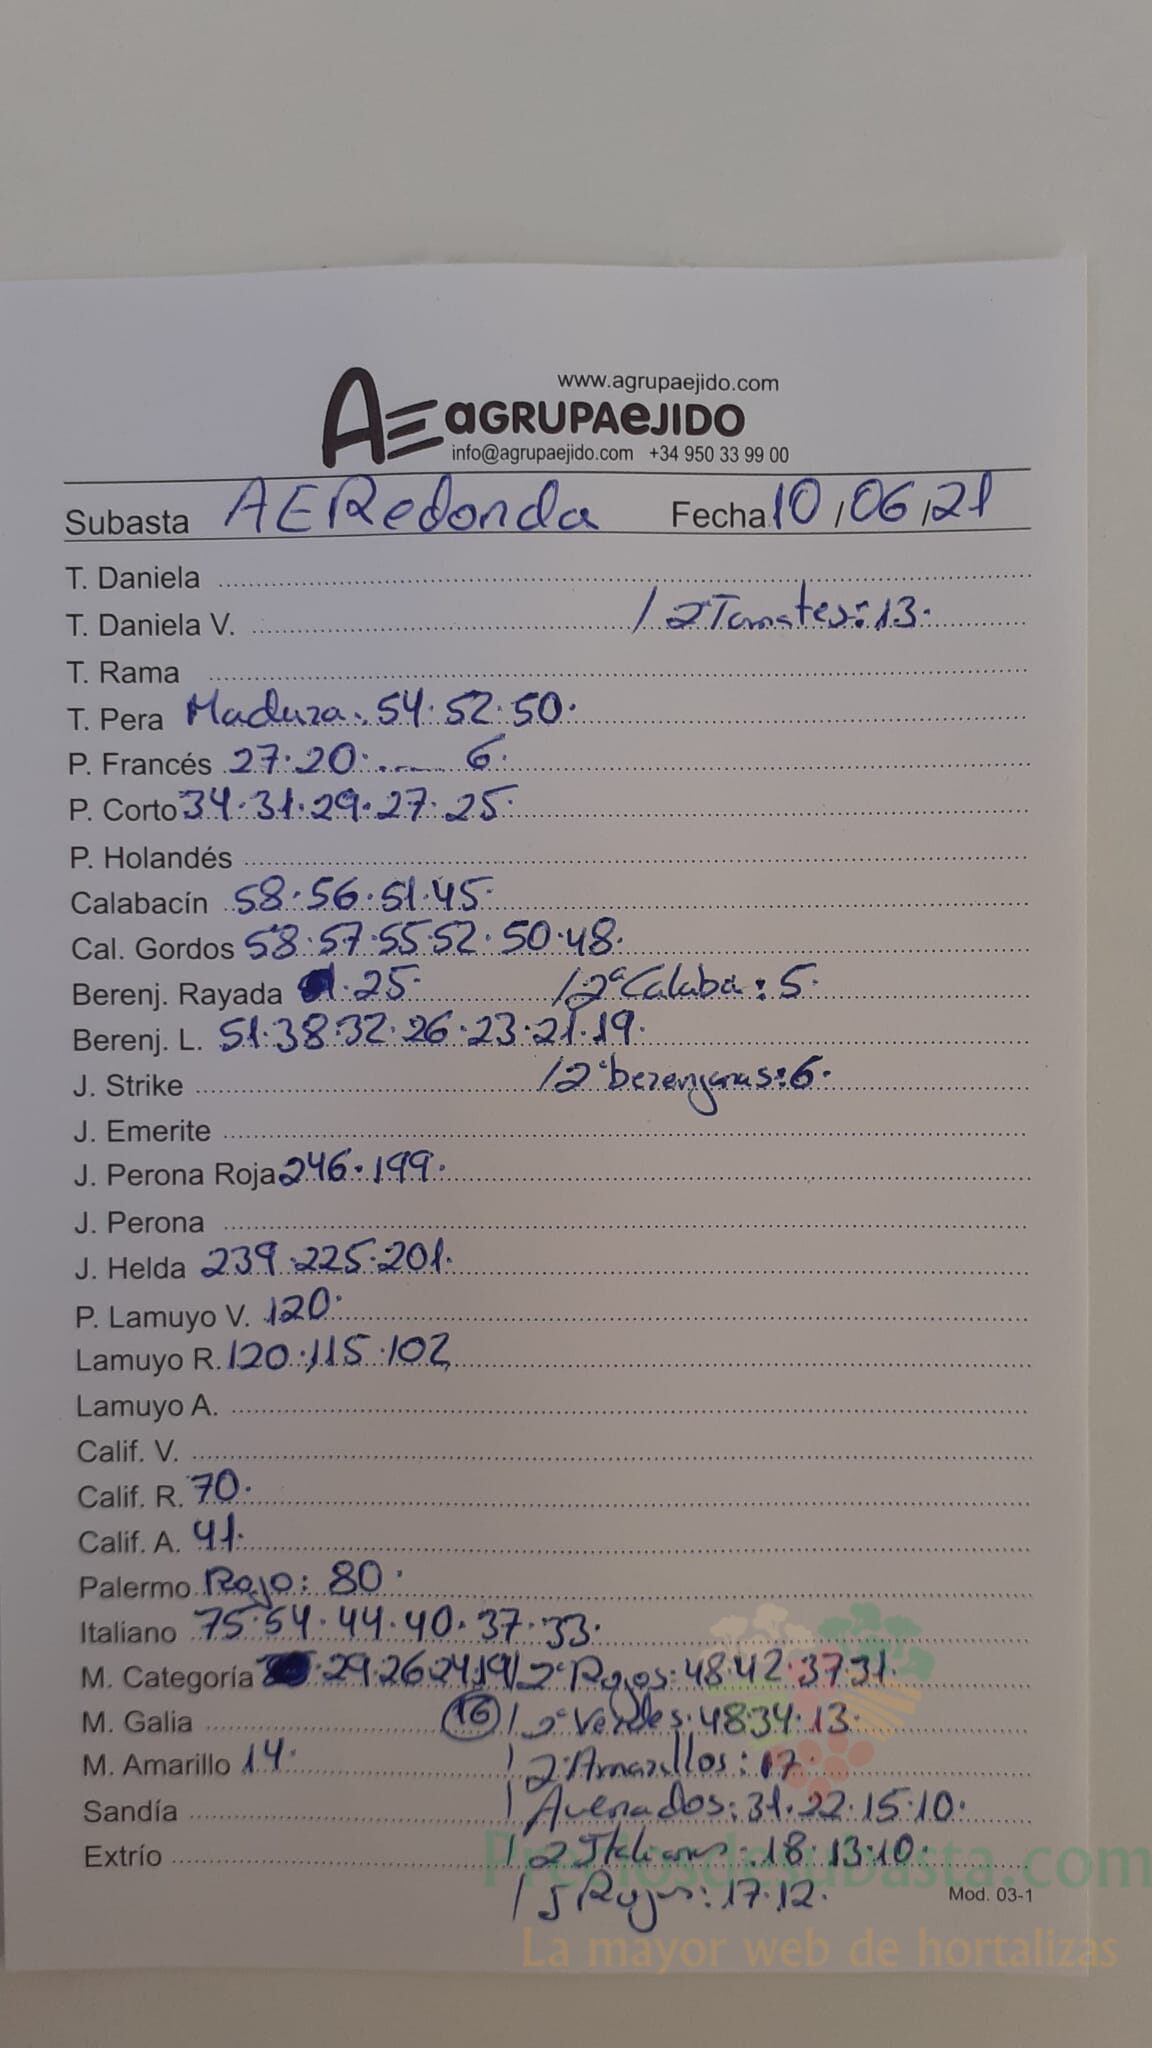 www.agrupaejido.com
AE aGRUPAeJIDO
info@agrupaejido.com +34 950 33 99 00
Subasta AERedonda Fecha 10/06/21
T. Daniela
T. Daniela V. / 2 Tomates: 13.
T. Rama
T. Pera Madura. 54. 52. 50.
P. Francés 27. 20. .— 6.
P. Corto 34. 31. 29. 27. 25.
P. Holandés
Calabacín 58. 56. 51. 45.
Cal. Gordos 58. 57. 55. 52. 50. 48.
Berenj. Rayada 25. / 2ª Calaba: 5.
Berenj. L. 51. 38. 32. 26. 23. 21. 19.
J. Strike / 2ª berenjenas: 6.
J. Emerite
J. Perona Roja 246. 199.
J. Perona
J. Helda 239. 225. 201.
P. Lamuyo V. 120.
Lamuyo R. 120. 115. 102
Lamuyo A.
Calif. V.
Calif. R. 70.
Calif. A. 41.
Palermo Rojo: 80.
Italiano 75. 54. 44. 40. 37. 33.
M. Categoría 29. 26. 24. 19 / 2ª Rojos: 48. 42. 37. 31.
M. Galia 16 / 2ª Verdes. 48. 34. 13.
M. Amarillo 14. / 2ª Amarillos: 17
Sandía / Asurados: 31. 22. 15. 10.
Extrío / 2 Italianos: 18. 13. 10.
/ 5 Rojos: 17. 12.
Mod. 03-1
Preciosdesubasta.com
La mayor web de hortalizas